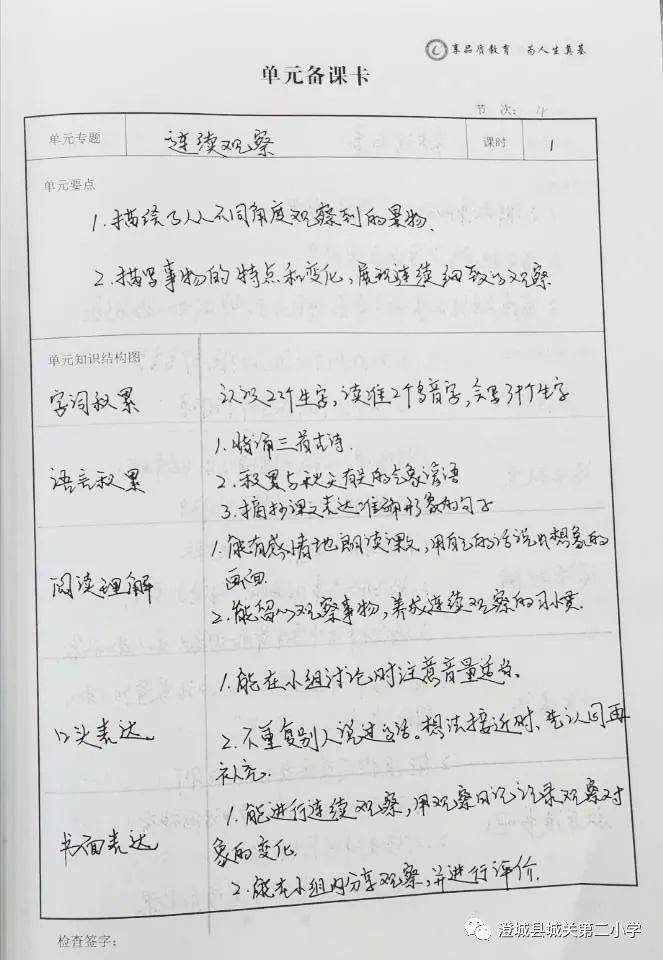 享品质教育 为人生奠基
单元备课卡
节 次: 4
单元专题 连续观察 课时 1
单元要点
1.描绘了人从不同角度观察到的景物.
2.描写事物的特点和变化,展现连续细致的观察
单元知识结构图
字词积累 认识22个生字,读准2个多音字,会写31个生字
1.背诵三首古诗.
语言积累 2.积累与秋天有关的气象谚语
3.摘抄课文表达准确形象的句子
1.能有感情地朗读课文,用自己的话说出想象的
阅读理解 画面.
2.能留心观察事物,养成连续观察的习惯.
1.能在小组讨论时注意音量适当.
口头表达 2.不重复别人说过的话。想法接近时,先认同再
补充.
1.能进行连续观察,用观察日记记录观察对
书面表达 象的变化.
2.能在小组内分享观察,并进行评价.
检查签字:
澄城县城关第二小学